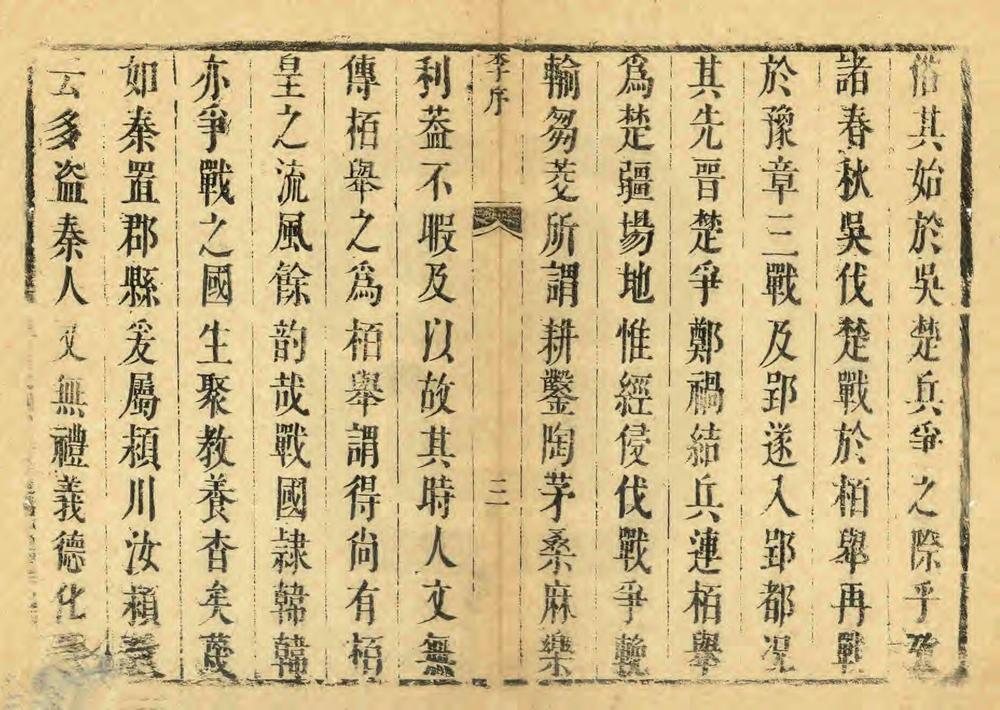 俗其始於吳楚兵爭之際乎
諸春秋吳伐楚戰於栢舉再戰
於豫章三戰及郢遂入郢都况
其先晋楚爭鄭禍結兵連栢舉
爲楚疆塲地惟經侵伐戰爭輓
輸芻茭所謂耕鑿陶茅桑麻樂
李序
三
利葢不暇及以故其時人文無
傳栢舉之爲栢舉謂得尙有栢
皇之流風餘韵哉戰國隷韓韓
亦爭戰之國生聚教養杳矣蔑
如秦置郡縣爰屬潁川汝潁
云多盗秦人又無禮義德化